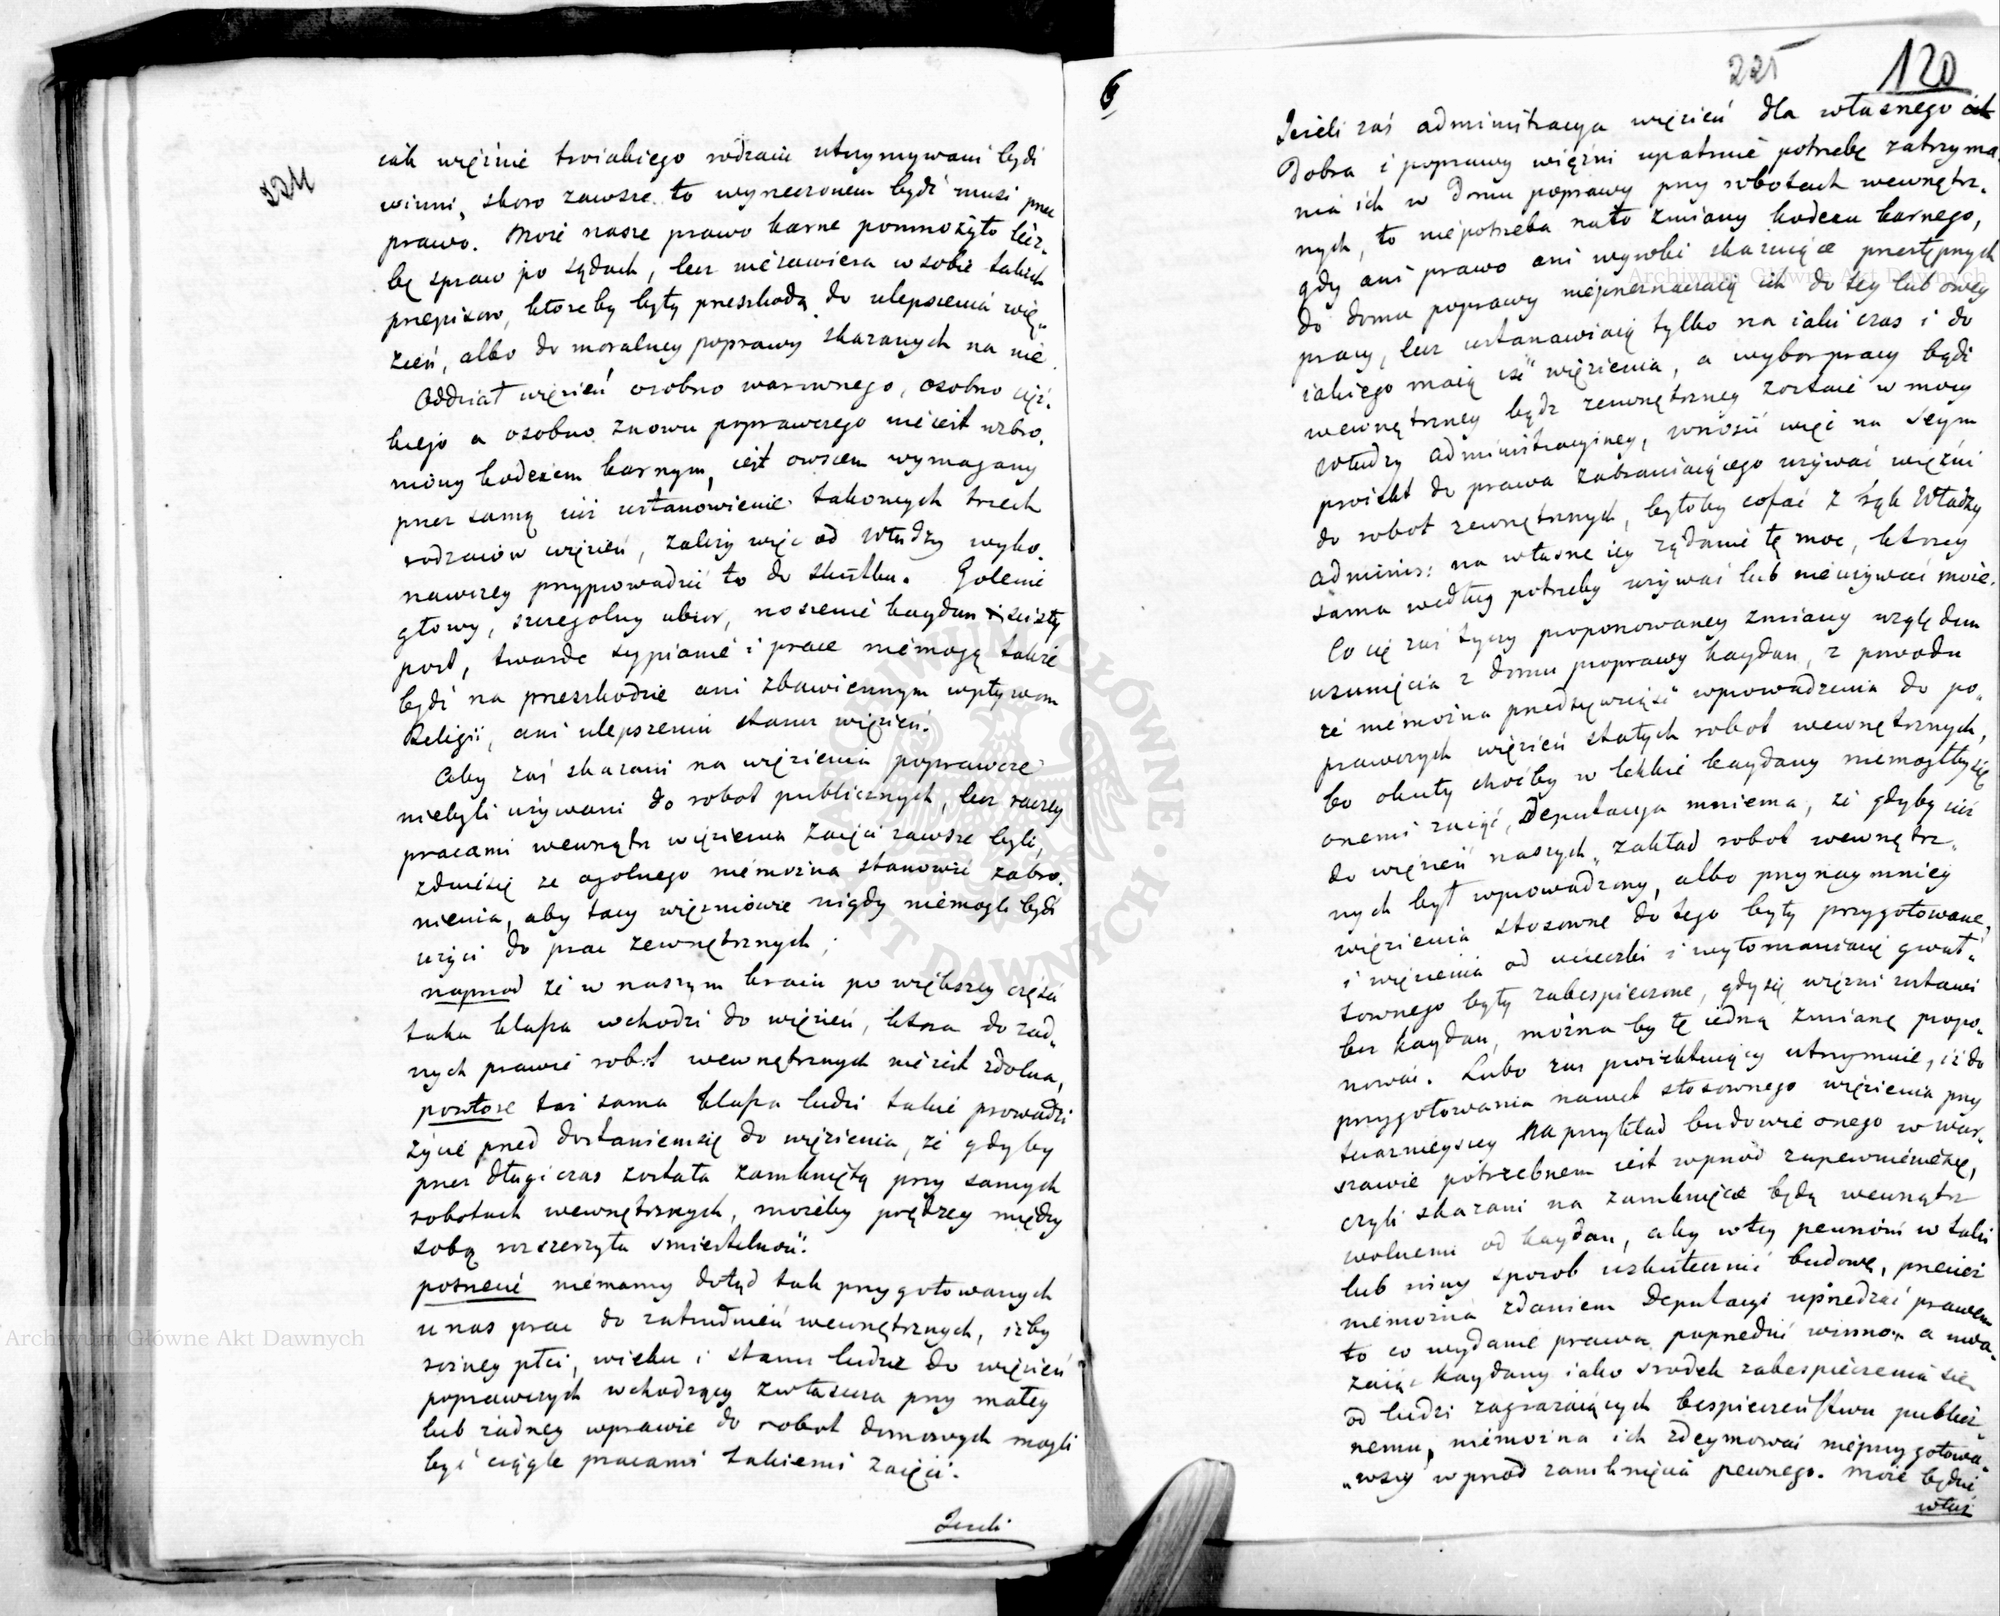 224
iak więźnie troiakiego rodzaiu utrzymywani bydź
winni, skoro zawsze to wyrzeczonem bydź musi przez
prawo. Może nasze prawo karne pomnożyło licz-
bę spraw po sądach, lecz niezawiera w sobie takich
przepisow, ktoreby były przeszkodą do ulepszenia wię-
zień, albo do moralney poprawy skazanych na nie.
Oddział więzień osobno warownego, osobno cięż-
kiego a osobno znowu poprawczego nieiest wzbro-
niony kodexem karnym, iest owszem wymagany
przez samą iuż ustanowienie takowych trzech
rodzaiów więzień, zależy więc od Władzy wyko-
nawczey przyprowadzić to do skutku. Golenie
głowy, szczegolny ubior, noszenie kaydan i ścisły
post, twarde sypianie i prace niemogą także
bydź na przeszkodzie ani zbawiennym wpływom
Religii, ani ulepszeniu stanu więzień.
Aby zaś skazani na więzienia poprawcze
niebyli używani do robot publicznych, lecz raczey
pracami wewnątrz więzienia zaięci zawsze byli,
zdaiesię że ogolnego niemożna stanowić zabro-
nienia, aby tacy więźniowie nigdy niemogli bydź
użyci do prac zewnętrznych;
naprzod że w naszym kraiu po większey części
taka klassa wchodzi do więzień, ktora do żad-
nych prawie robot wewnętrznych nieiest zdolna,
powtore taż sama klassa ludzi takie prowadzi
życie przed dostaniemsię do więzienia, że gdyby
przez długi czas została zamkniętą przy samych
robotach wewnętrznych, możeby prędzey między
sobą rozszerzyła śmiertelność.
potrzecie niemamy dotąd tak przygotowanych
u nas prac do zatrudnień wewnętrznych, iżby
rożney płci, wieku i stanu ludzie do więzień
poprawczych wchodzący zwłaszcza przy małey
lub żadney wprawie do robot domowych mogli
być ciągle pracami takiemi zaięci.
Jeżeli
6
225
120
Jeżeli zaś administracya więzień dla własnego ich
Dobra i poprawy więźni upatrzie potrzebę zatrzyma-
nia ich w Domu poprawy przy robotach wewnętrz-
nych, to niepotrzeba nato zmiany kodexu karnego,
gdy ani prawo ani wyroki skazuiące przestępnych
do domu poprawy nieprzeznaczaią ich do tey lub owey
pracy, lecz ustanawiaią tylko na iaki czas i do
iakiego maią iść więzienia, a wybor pracy bądź
wewnętrzney bądź zewnętrzney zostaie w mocy
Władzy administracyiney, wnosić więc na Seym
proiekt do prawa zabraniaiącego używać więźni
do robot zewnętrznych, byłoby cofać z rąk Władzy
adminis: na własne iey żądanie tę moc, ktorey
sama według potrzeby używać lub nieużywać może.
Co się zaś tyczy proponowaney zmiany względem
usunięcia z domu poprawy kaydan, z powodu
że niemożna przedsięwziąść wprowadzenia do po-
prawczych więzień stałych robot wewnętrznych,
bo okuty choćby w lekkie kaydany niemogłbysię
onemi zaiąć, Deputacya mniema, że gdyby iuż
do więzień naszych zakład robot wewnętrz-
nych był wprowadzony, albo przynaymniey
więzienia stosowne do tego były przygotowane,
i więzienia od ucieczki i wyłomaniasię gwał-
townego były zabespieczone, gdysię więźni zostawi
bez kaydan, można by tę iedną zmianę propo-
nować. Lubo zaś proiektuiący utrzymuie, iż do
przygotowania nawet stosownego więzienia przy
tuteyszey naprzykład budowie onego w War-
szawie potrzebnem iest wprzod zapewnieniesię,
czyli skazani na zamknięcie będą wewnątrz
wolnemi od kaydan, aby w tey pewności w taki
lub inny sposob uskutecznić budowę, przecież
niemożna zdaniem Deputacyi uprzedzać prawem
to co wydanie prawa poprzedzić winno, a uwa-
żaiąc kaydany iako środek zabespieczenia się
od ludzi zagrażaiących bespieczeństwu publicz-
nemu, niemożna ich zdeymować nieprzygotowa-
wszy wprzod zamknięcia pewnego. Może będzie
właś